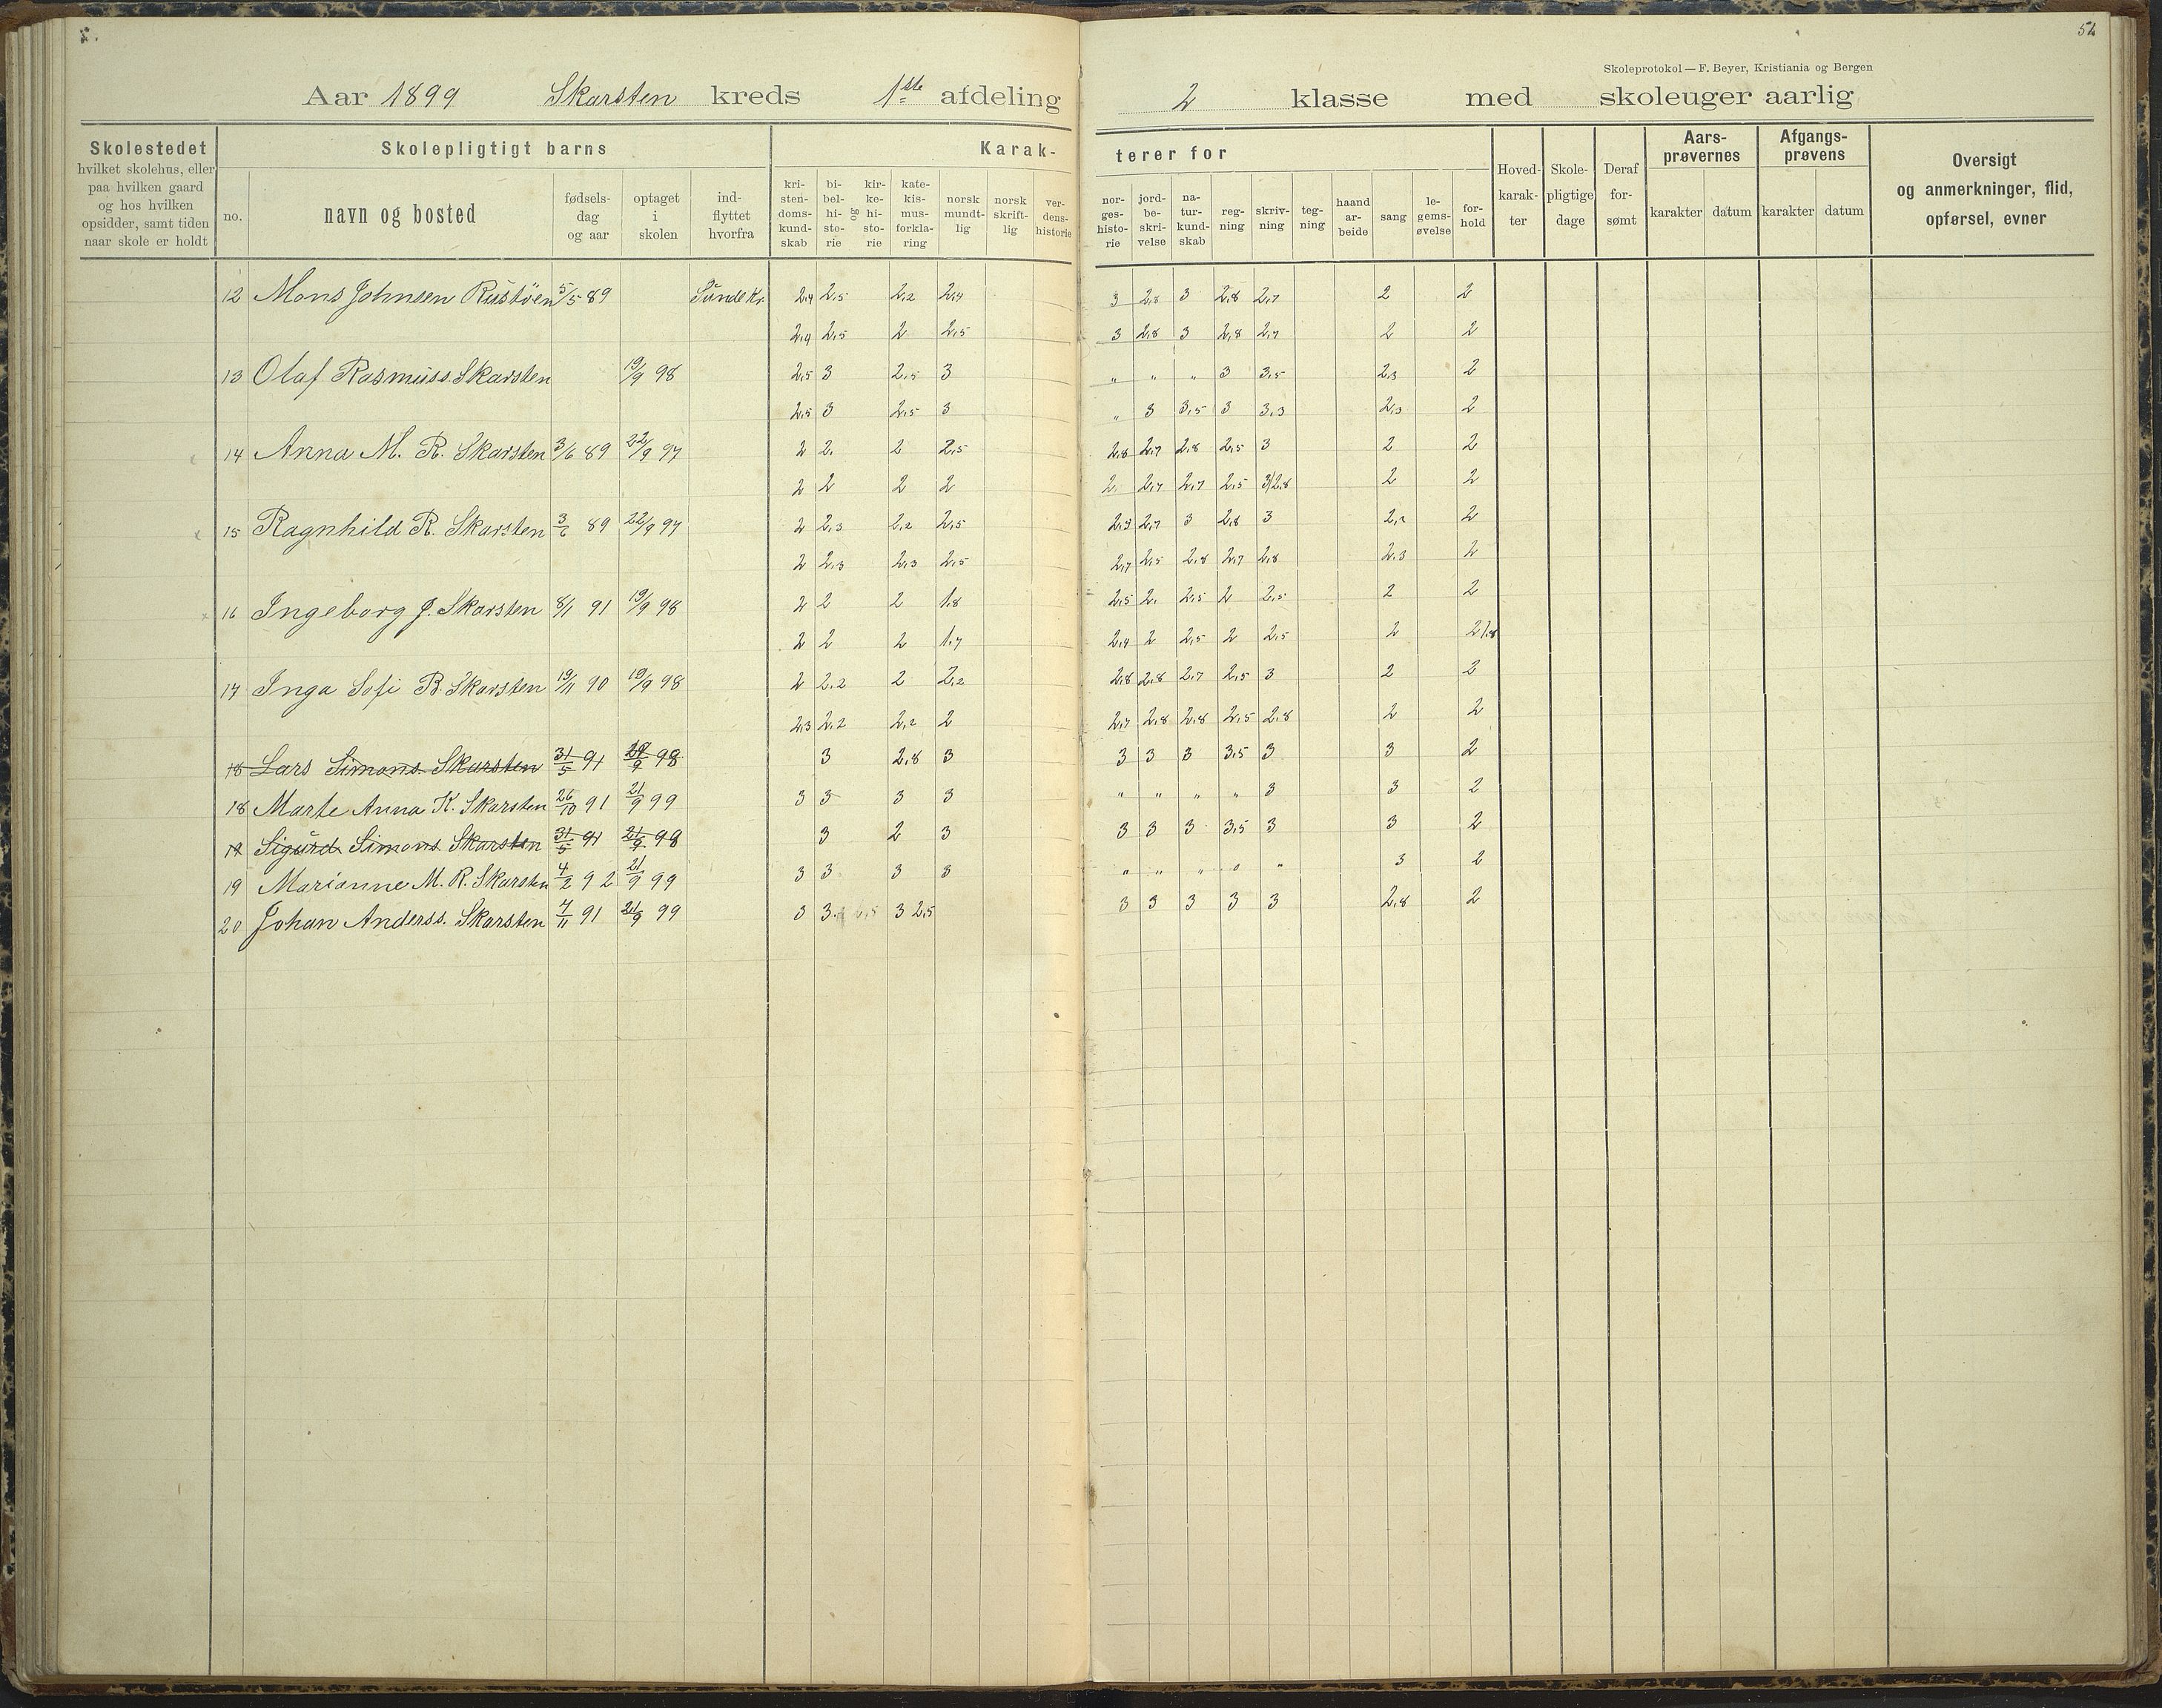 52
Skoleprotokol — F. Beyer, Kristiania og Bergen
Aar 1899 Skarsten kreds 1ste afdeling 2 klasse med skoleuger aarlig
Skolestedet hvilket skolehus, eller paa hvilken gaard og hos hvilken opsidder, samt tiden naar skole er holdt
Skolepligtigt barns
no. navn og bosted fødsels-dag og aar optaget i skolen ind-flyttet hvorfra
Karak-terer for
kri-sten-doms-kund-skab bi-bel-hi-sto-rie og kir-ke-hi-sto-rie kate-kis-mus-forkla-ring norsk mundt-lig norsk skrift-lig ver-dens-historie
nor-ges-histo-rie jord-be-skri-velse na-tur-kund-skab reg-ning skriv-ning teg-ning haand ar-beide sang le-gems-øvelse for-hold
Hoved-karak-ter Skole-pligtige dage Deraf for-sømt
Aars-prøvernes karakter datum
Afgangs-prøvens karakter datum
Oversigt og anmerkninger, flid, opførsel, evner
12 Mons Johnsen Rustöen 5/5 89 Sunde Kr. 2,4 2,5 2,2 2,4 3 2,8 3 2,8 2,7 2 2
2,4 2,5 2 2,5 3 2,8 3 2,8 2,7 2 2
13 Olaf Rasmuss. Skarsten 19/9 98 2,5 3 2,5 3 " " " 3 3,5 2,3 2
2,5 3 2,5 3 " 3 3,5 3 3,3 2,3 2
14 Anna M. R. Skarsten 3/6 89 22/9 97 2 2. 2 2,5 2,8 2,7 2,8 2,5 3 2 2
2 2 2 2 2. 2,7 2,7 2,5 3/2,8 2 2
15 Ragnhild R. Skarsten 3/6 89 22/9 97 2 2,3 2,2 2,5 2,9 2,7 3 2,8 3 2,2 2
2 2,3 2,3 2,5 2,7 2,5 2,8 2,7 2,8 2,3 2
16 Ingeborg J. Skarsten 8/1 91 19/9 98 2 2 2 1,8 2,5 2. 2,5 2 2,5 2 2
2 2 2 1,7 2,4 2 2,5 2 2,5 2 2 1,8
17 Inga Sofi B. Skarsten 19/11 90 19/9 98 2 2,2 2 2,2 2,8 2,8 2,7 2,5 3 2 2
2,3 2,2 2,2 2 2,7 2,8 2,8 2,5 2,8 2 2
18 Lars Simons. Skarsten 31/5 91 98 3 2,8 3 3 3 3 3,5 3 3 2
18 Marte Anna K. Skarsten 26/10 91 21/9 99 3 3 3 3 " " " " 3 3 2
19 Sigurd Simons. Skarsten 31/5 91 21/9 98 3 2 3 3 3 3 3,5 3 3 2
19 Marianne M. R. Skarsten 4/2 92 21/9 99 3 3 3 3 " " " " 3 2
20 Johan Anderss. Skarsten 7/11 91 21/9 99 3 3 3 2,5 3 3 3 3 3 2,8 2